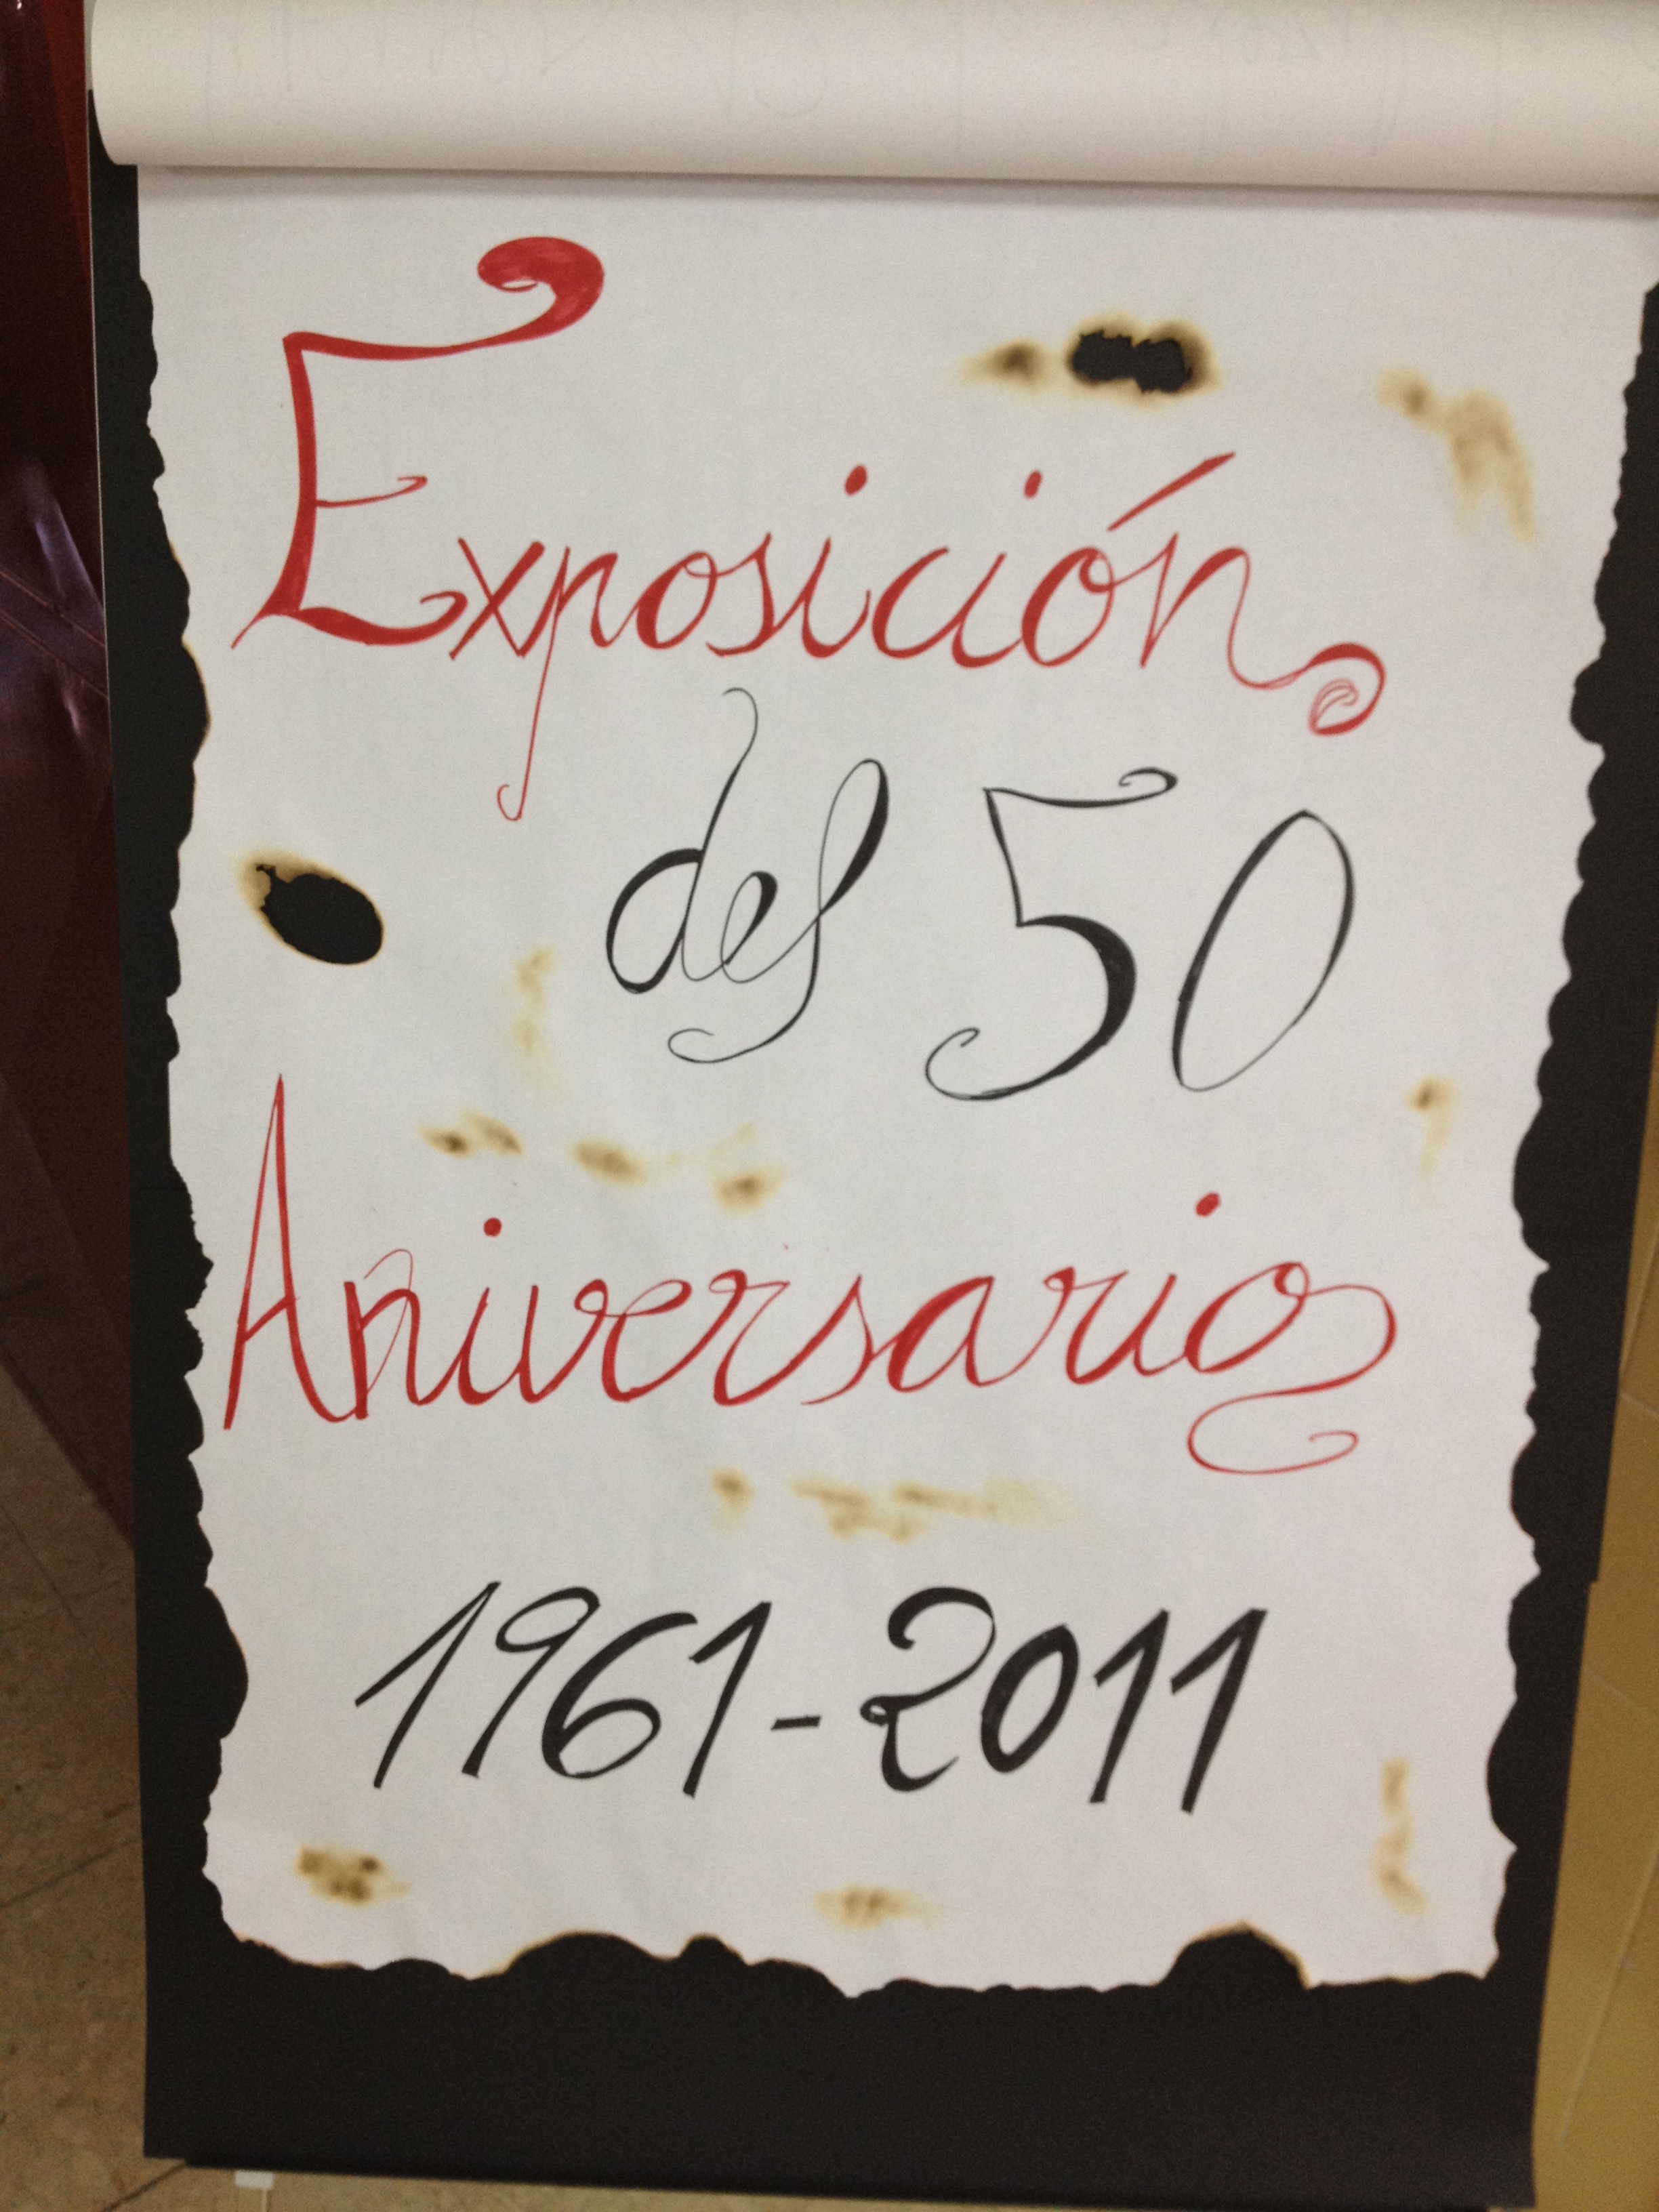 Exposición
del 50
Aniversario
1961-2011